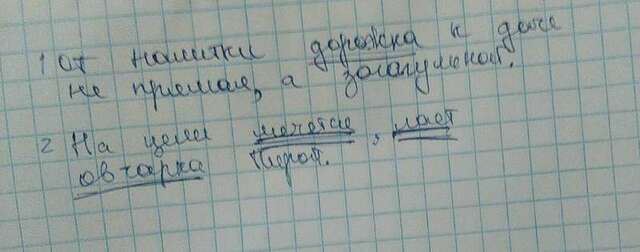 1 От калитки дорожка к даче
не прямая, а загагулиной.
2 На цепи мечется, лает
овчарка Пират.